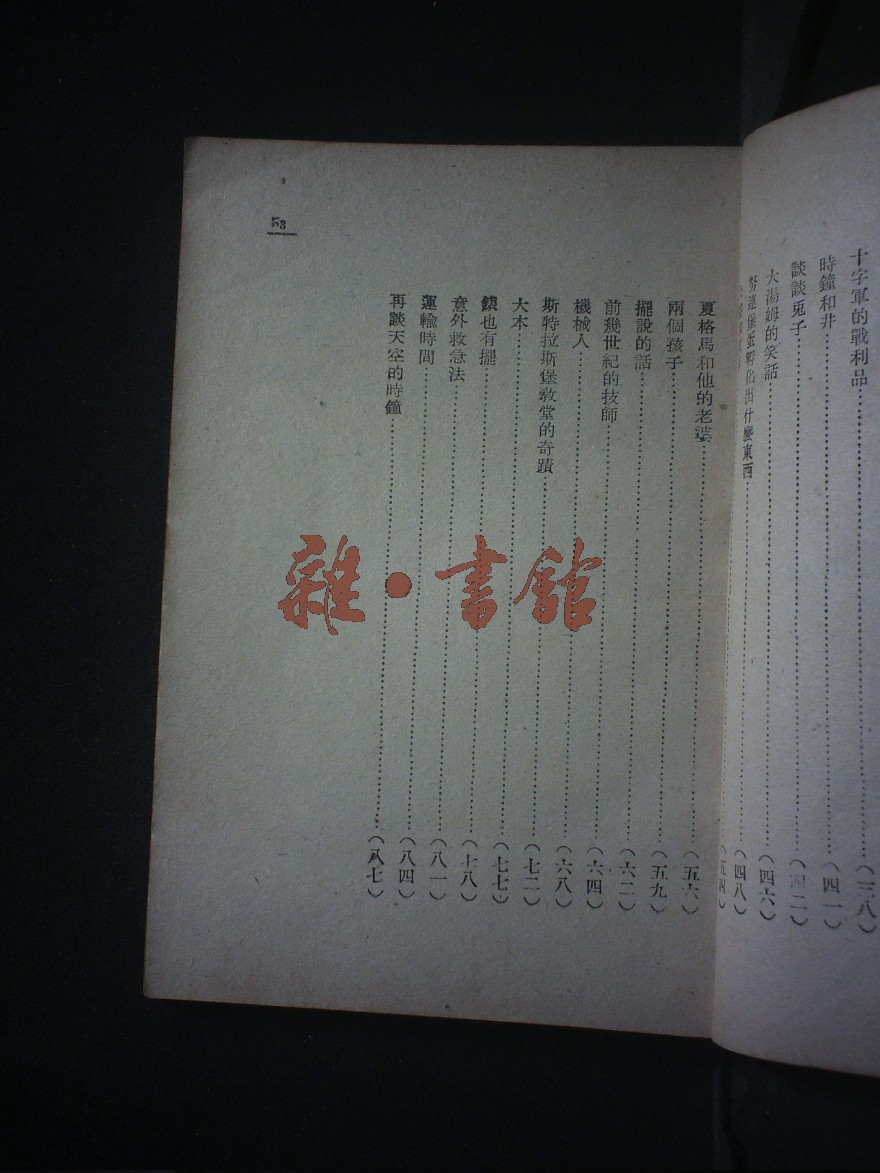 十字軍的戰利品…………(三八)
時鐘和井…………(四一)
談談兎子…………(四二)
大湯姆的笑話…………(四六)
努連堡蛋孵化出什麼東西…………(四八)
(五四)
夏格馬和他的老婆…………(五六)
兩個孩子…………(五九)
擺說的話…………(六二)
前幾世紀的技師…………(六四)
機械人…………(六八)
斯特拉斯堡敎堂的奇蹟…………(七二)
大本…………(七七)
錶也有擺…………(十八)
意外救急法…………(八一)
運輸時間…………(八四)
再談天空的時鐘…………(八七)
雜·書館